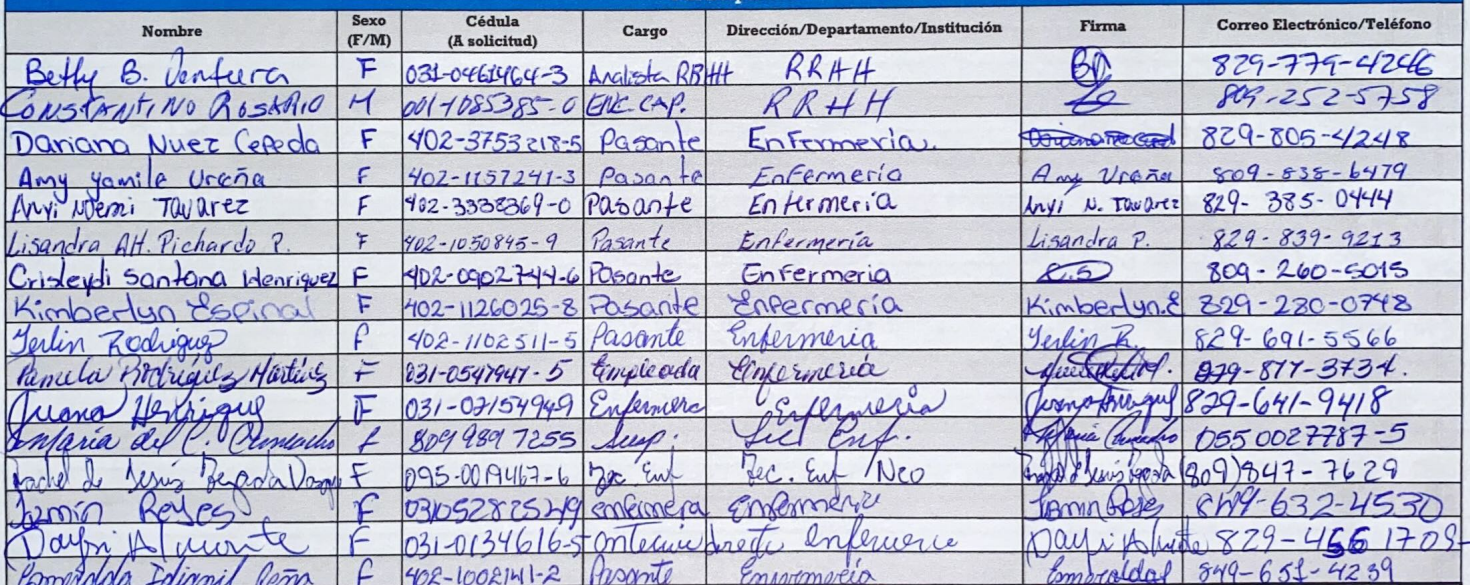 Nombre Sexo (F/M) Cédula (A solicitud) Cargo Dirección/Departamento/Institución Firma Correo Electrónico/Teléfono
Betty B. Ventura F 031-0461464-3 Analista RRHH RRHH 829-779-4246
CONSTANTINO ROSARIO M 001-1085385-0 ENC. CAP. RRHH 809-252-5758
Dariana Nuez Cepeda F 402-3753218-5 Pasante Enfermería. 829-805-4248
Amy Yamile Ureña F 402-1157241-3 Pasante Enfermería Amy Ureña 809-838-6479
Anyi Noemi Tavarez F 402-3338369-0 Pasante Enfermería Anyi N. Tavarez 829-385-0444
Lisandra AH. Pichardo P. F 402-1050845-9 Pasante Enfermería Lisandra P. 829-839-9213
Crisleydi Santana Henriquez F 402-0902744-6 Pasante Enfermeria C.S 809-260-5015
Kimberlyn Espinal F 402-1126025-8 Pasante Enfermería Kimberlyn.E 829-280-0748
Yerlin Rodriguez F 402-1102511-5 Pasante Enfermeria Yerlin R. 829-691-5566
Pamela Rodríguez Martínez F 031-0547947-5 Empleada Enfermería 879-877-3734.
Juana Henriquez F 031-07154949 Enfermera Enfermería 829-641-9418
del C. f 809 989 7255 Sup. Enf. 0550027787-5
de Jesús F 095-0019467-6 Enf Tec. Enf Neo (809)847-7629
Reyes F 03105282549 enfermera Enfermeria 849-632-4530
Dayri Almonte F 031-0134616-5 enfermeria 829-456 1709
Peña F 402-1002141-2 Pasante Enfermería 849-651-4239